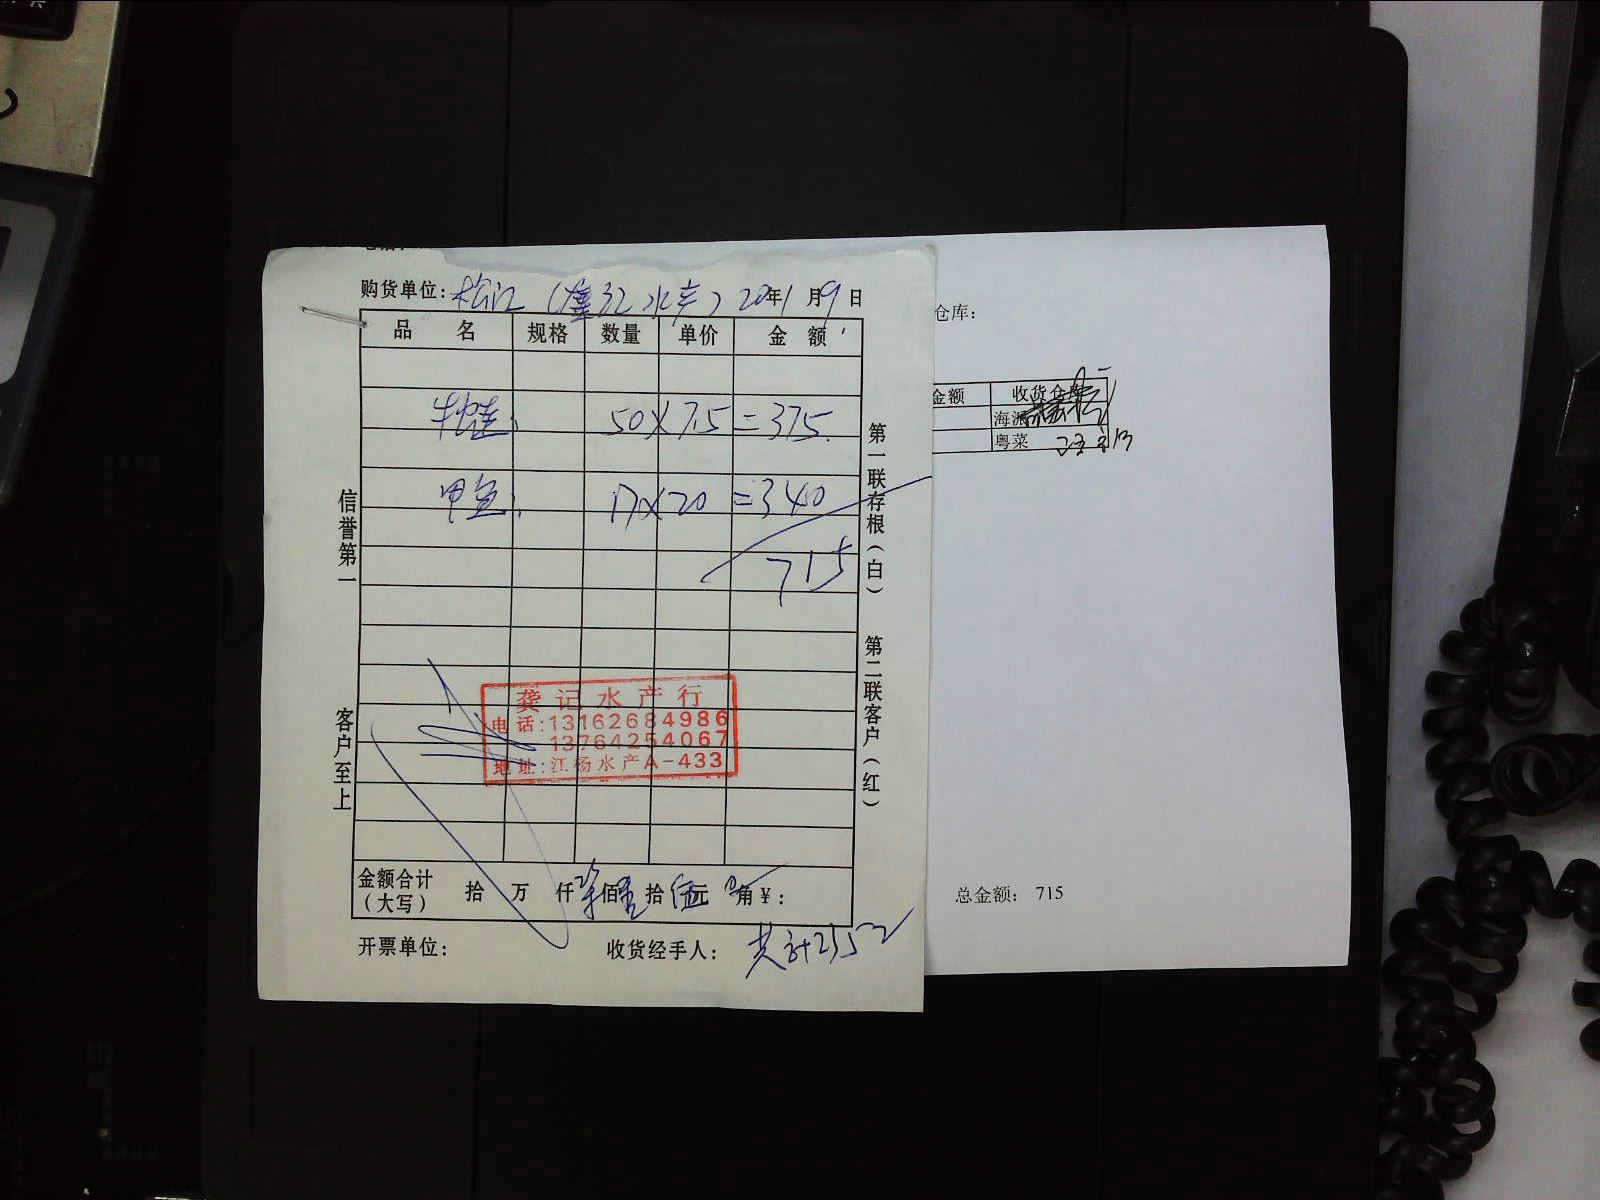 购货单位：松江（龚记水产）20年1月9日
品名 规格 数量 单价 金额
牛蛙： 50×7.5=375.
甲鱼： 17×20=340
715
信誉第一
客户至上
第一联存根（白）
第二联客户（红）
龚记水产行
电话：13162684986
13764254067
地址：江杨水产A-433
金额合计（大写） 拾 万 仟 柒佰壹拾伍元 0角￥：
开票单位：
收货经手人：
仓库：
金额 收货仓库
海派
粤菜
总金额： 715